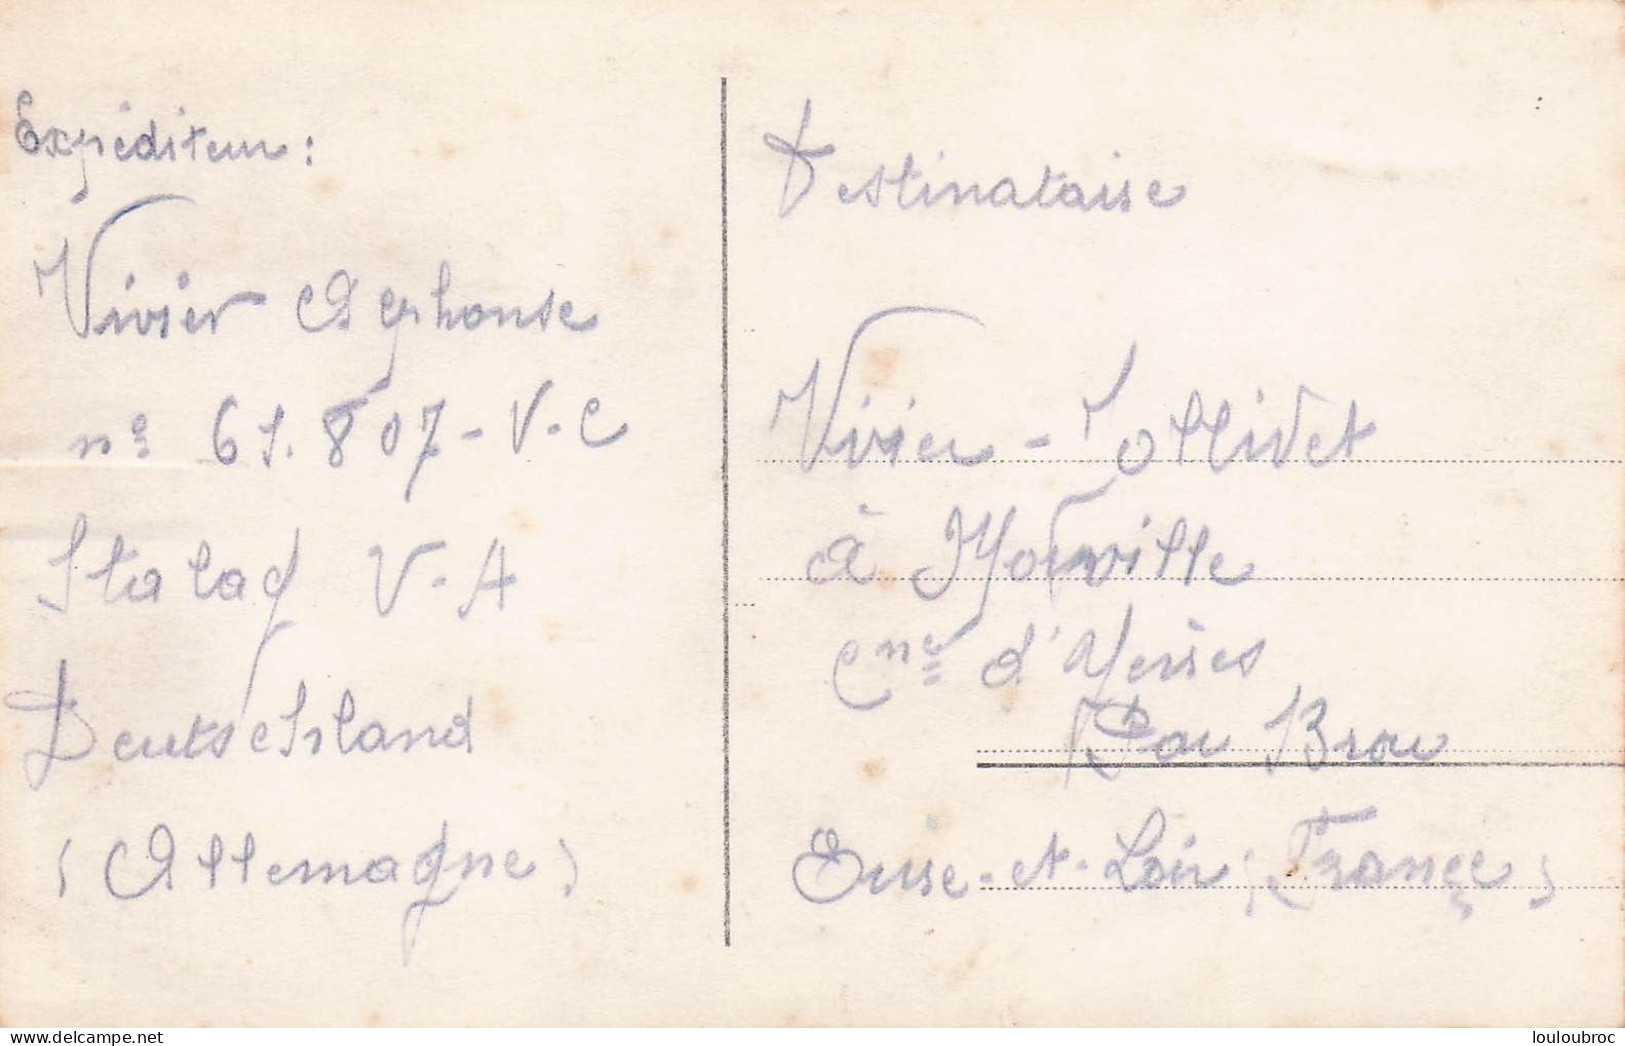 Expéditeur :
Vivier Alphonse
n° 61.807 - V-C
Stalag V-A
Deutschland
(Allemagne)
Destinataire
Vivier - Jollivet
à Morville
Cne d'Yèvres
Par Brou
Eure-et-Loir (France)
delcampe.net
louloubroc